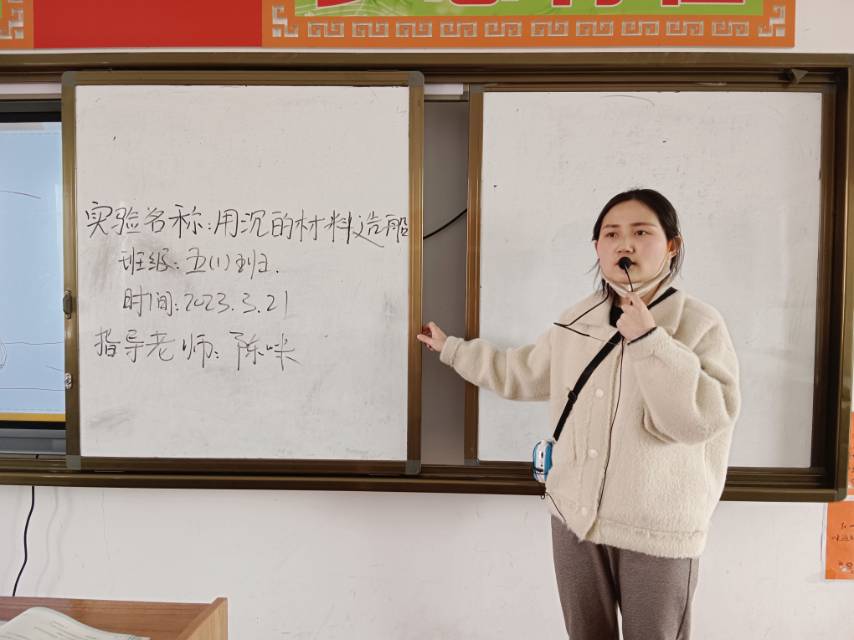 实验名称:用沉的材料造船
班级:五(1)班.
时间:2023.3.21
指导老师:陈咪